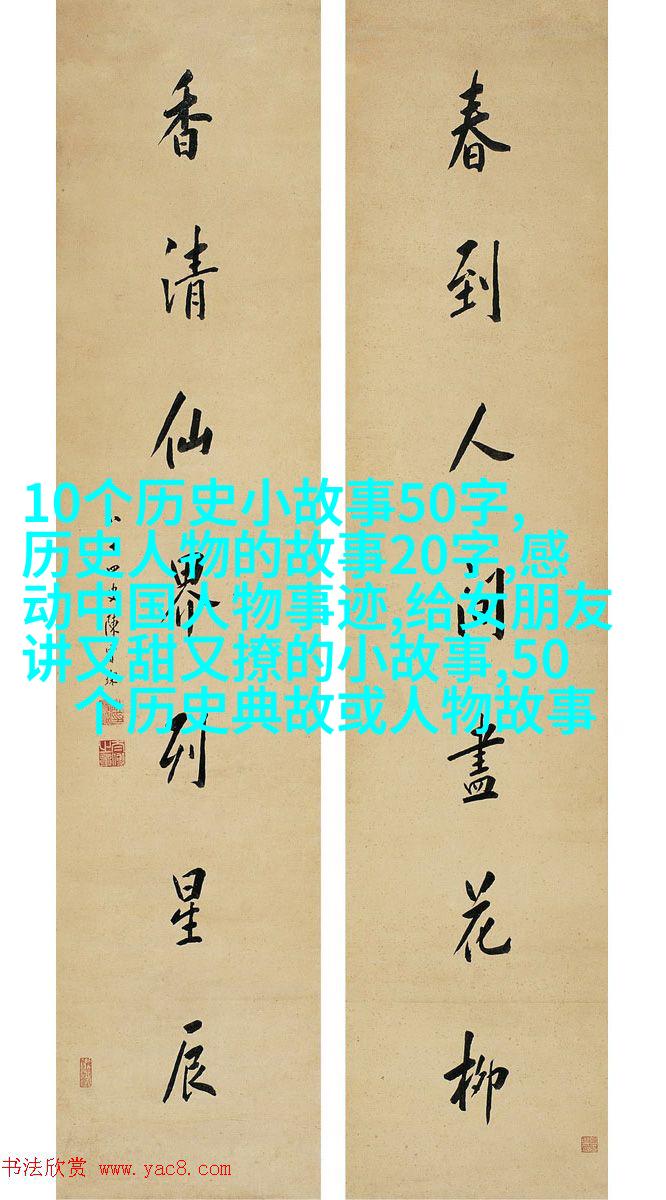 春到人间盡花柳
香清仙界列星辰
10个历史小故事50字,
历史人物的故事20字,感
动中国人物事迹,给女朋友
讲又甜又撩的小故事,50
个历史典故或人物故事
书法欣赏 www.yac8.com